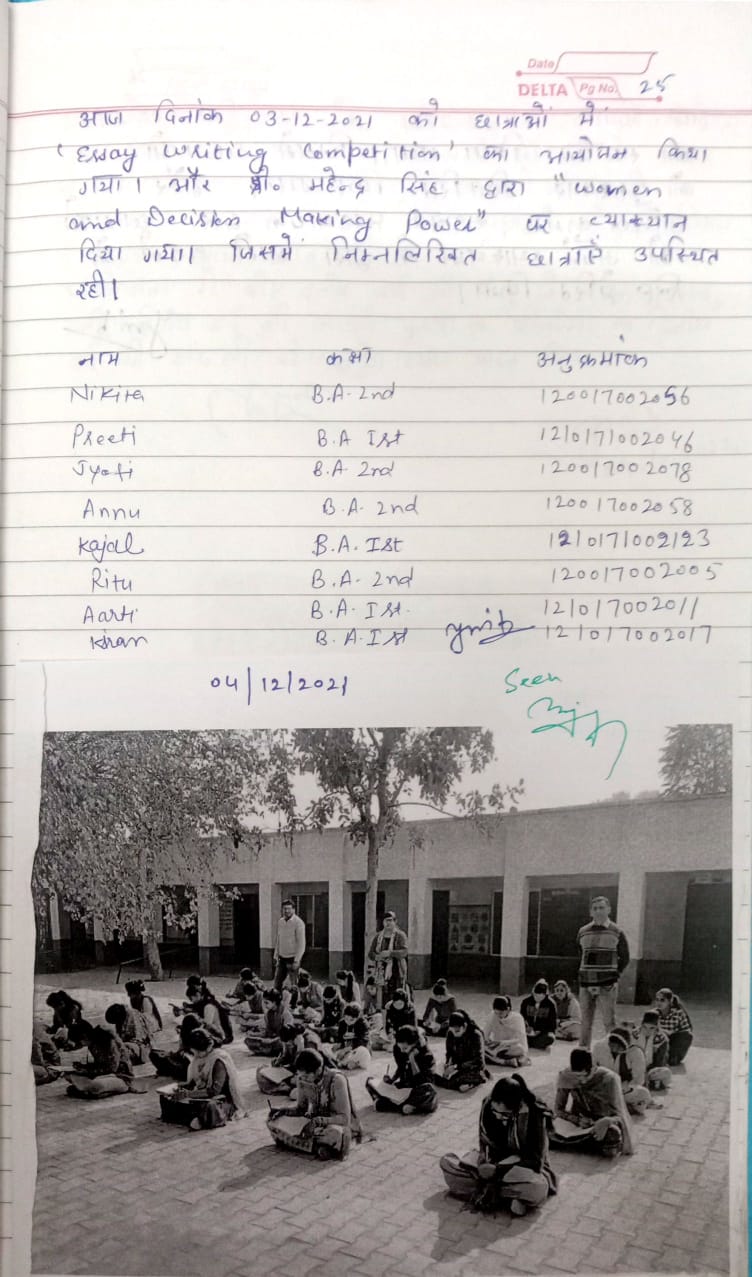 Date
DELTA Pg No. 25
आज दिनांक 03-12-2021 को छात्राओं में
'Essay Writing Competition' का आयोजन किया
गया। और प्रो. महेन्द्र सिंह द्वारा "Women
and Decision Making Power" पर व्याख्यान
दिया गया। जिसमें निम्नलिखित छात्राएँ उपस्थित
रही।
नाम कक्षा अनुक्रमांक
Nikita B.A. 2nd 120017002056
Preeti B.A Ist 1210171002046
Jyoti B.A. 2nd 120017002078
Annu B.A. 2nd 120017002058
Kajal B.A. Ist 1210171002123
Ritu B.A. 2nd 120017002005
Aarti B.A. Ist. 121017002011
Kiran B.A. Ist 121017002017
04/12/2021
Seen